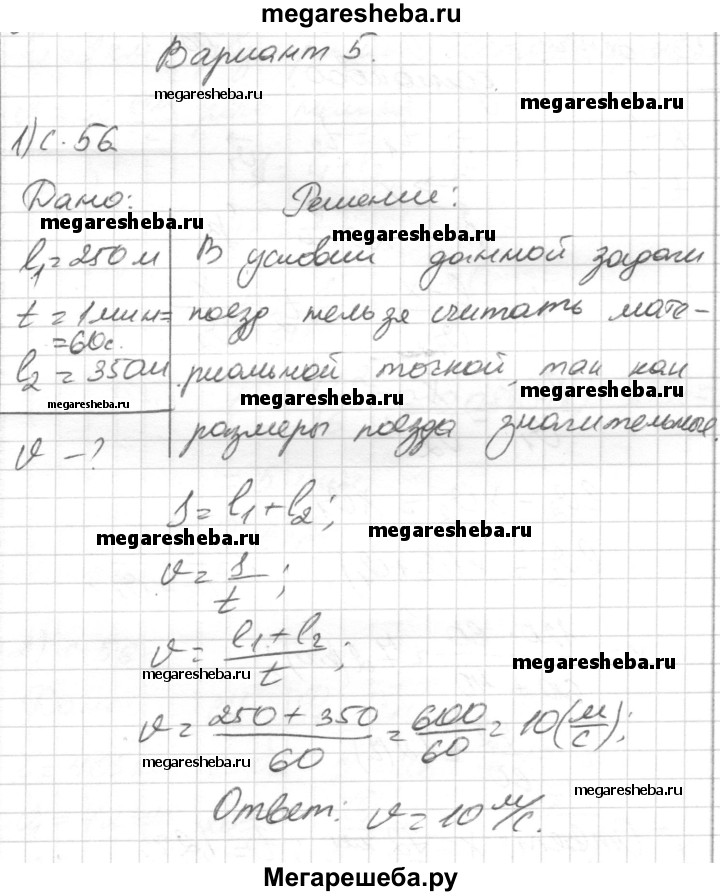 megaresheba.ru
Вариант 5.
megaresheba.ru
megaresheba.ru
1) с. 56
Дано:
Решение:
megaresheba.ru
megaresheba.ru
l₁ = 250 м
В условии данной задачи
t = 1 мин =
= 60 с.
поезд нельзя считать мате-
l₂ = 350 м
риальной точкой, так как
megaresheba.ru
megaresheba.ru
megaresheba.ru
размеры поезда значительные.
v – ?
S = l₁ + l₂;
megaresheba.ru
megaresheba.ru
v = S/t;
v = (l₁ + l₂)/t;
megaresheba.ru
megaresheba.ru
v = (250 + 350)/60 = 600/60 = 10 (м/с);
megaresheba.ru
megaresheba.ru
Ответ: v = 10 м/с.
Мегарешеба.ру